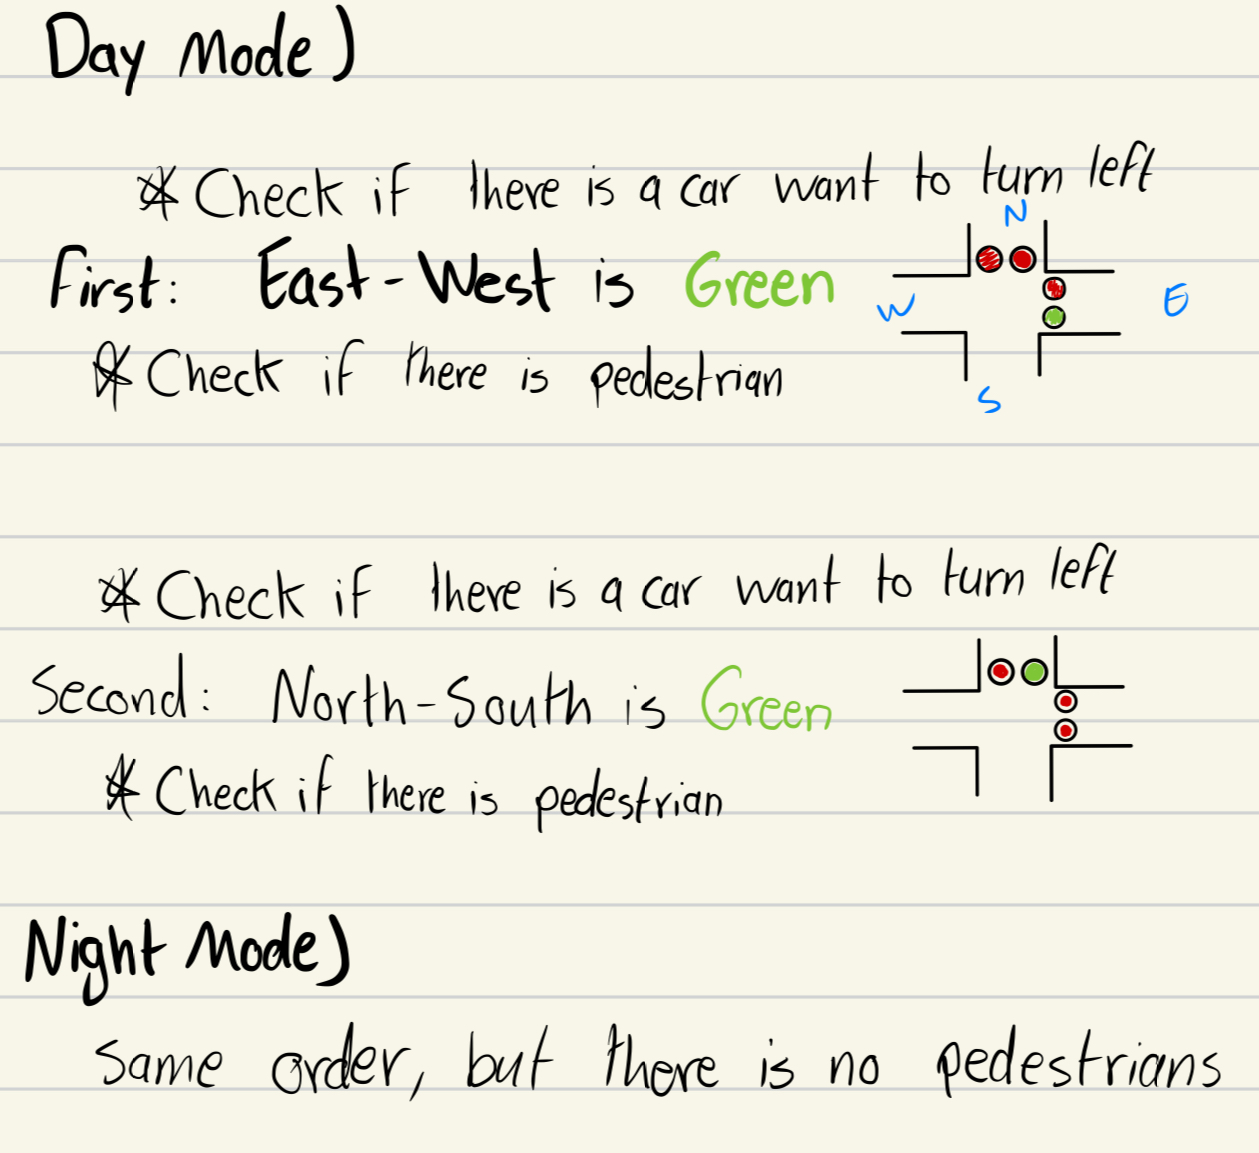 Day Mode)
* Check if there is a car want to turn left
N
First: East-West is Green
W
E
* Check if there is pedestrian
S
* Check if there is a car want to turn left
Second: North-South is Green
* Check if there is pedestrian
Night Mode)
same order, but there is no pedestrians